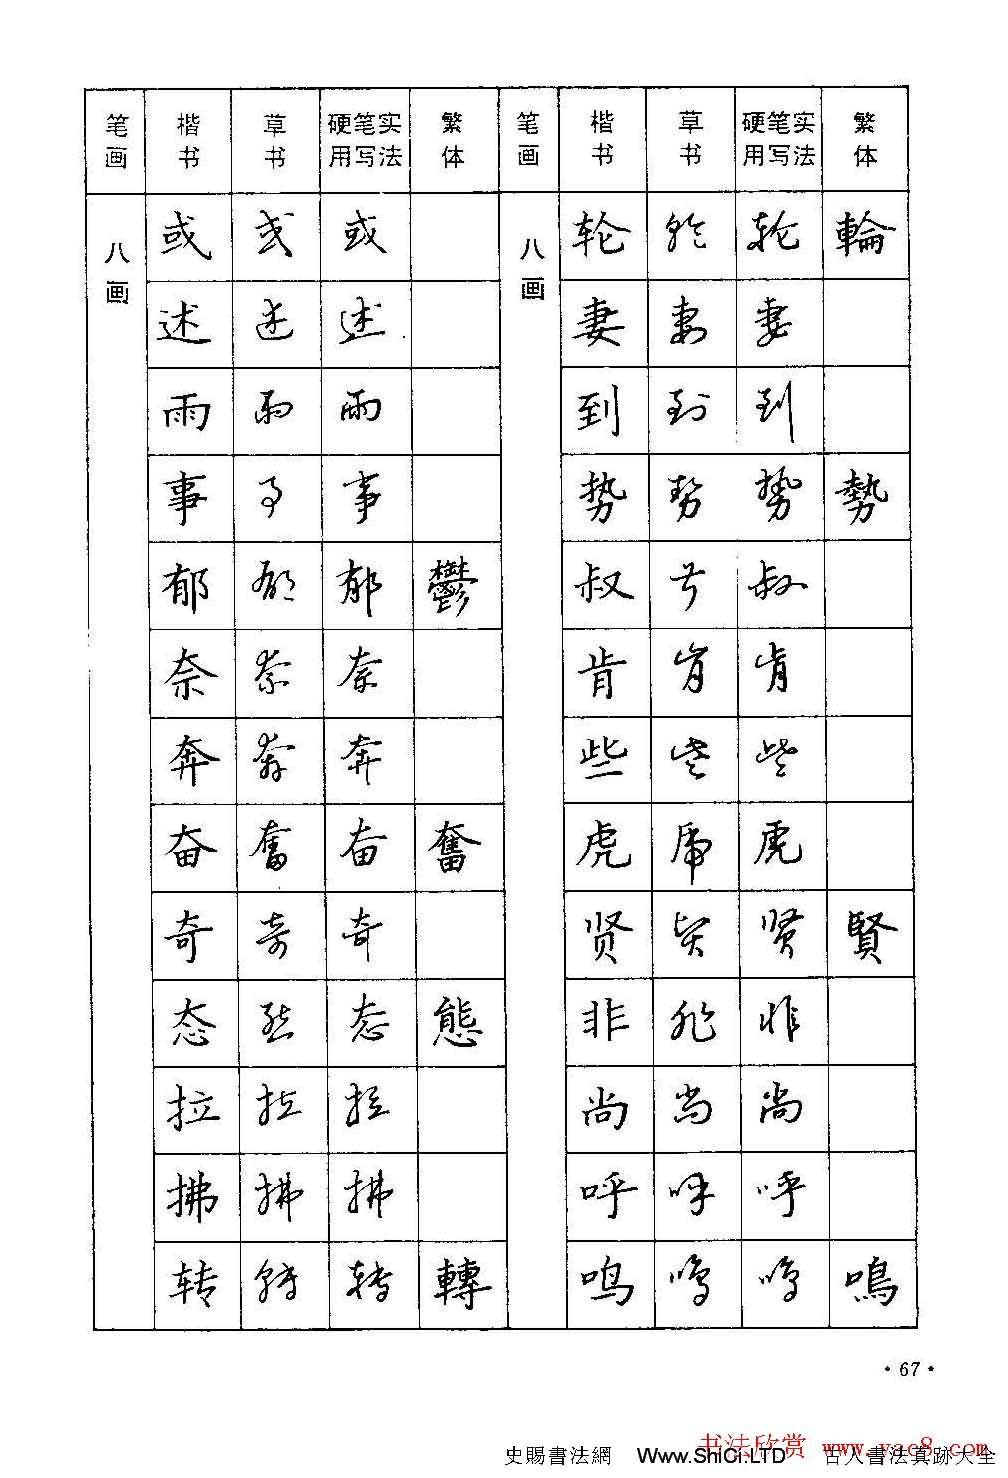 笔画 楷书 草书 硬笔实用写法 繁体 笔画 楷书 草书 硬笔实用写法 繁体
八画 或 或 或 八画 轮 轮 轮 輪
述 述 述 妻 妻 妻
雨 雨 雨 到 到 到
事 事 事 势 势 势 勢
郁 郁 郁 鬱 叔 叔 叔
奈 奈 奈 肯 肯 肯
奔 奔 奔 些 些 些
奋 奮 奋 奮 虎 虎 虎
奇 奇 奇 贤 贤 贤 賢
态 态 态 態 非 非 非
拉 拉 拉 尚 尚 尚
拂 拂 拂 呼 呼 呼
转 转 转 轉 鸣 鸣 鸣 鳴
·67·
书法欣赏 www.yac8.com
史賜書法網 Www.ShiCi.LTD 古人書法真跡大全